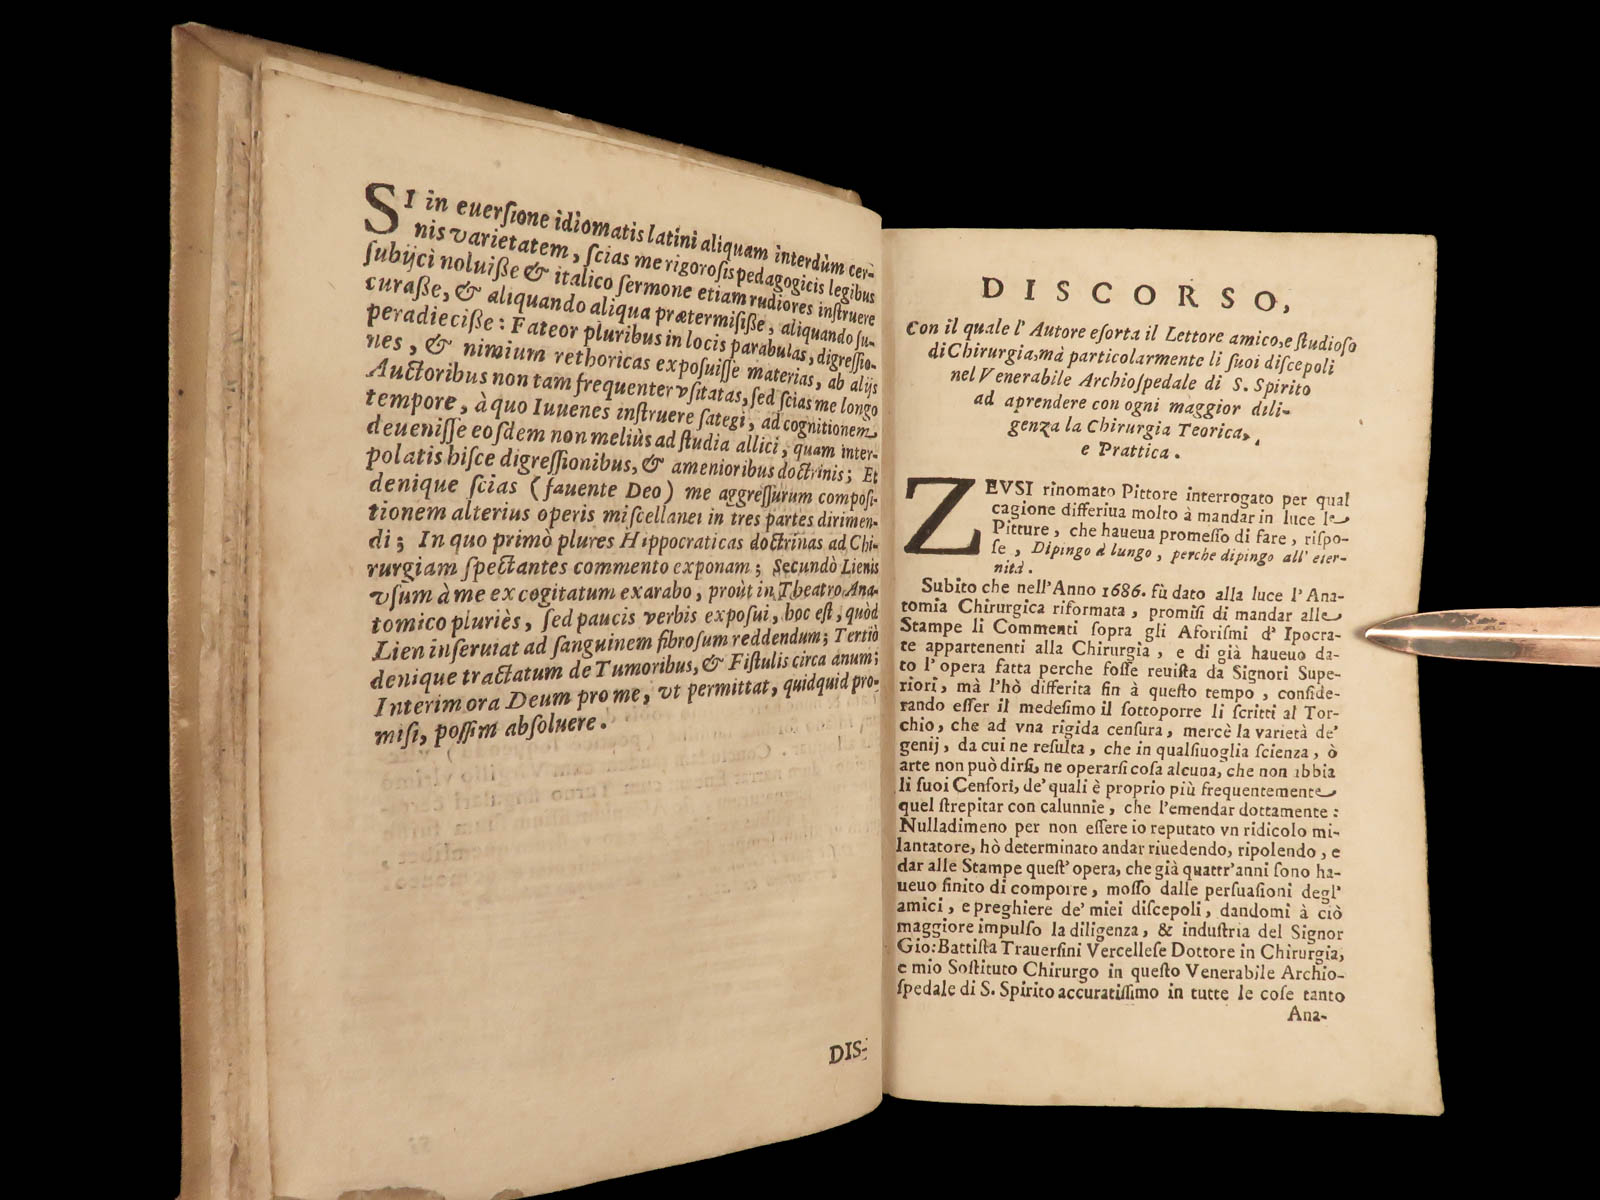 SI in euersione idiomatis latini aliquam interdùm cer-
nis varietatem, scias me rigorosis pedagogicis legibus
subijci noluisse & italico sermone etiam rudiores instruere
curasse, & aliquando aliqua prætermisisse, aliquando su-
peradiecisse: Fateor pluribus in locis parabulas, digressio-
nes, & nimium rethoricas exposuisse materias, ab alijs
Auctoribus non tam frequenter vsitatas, sed scias me longo
tempore, à quo Iuuenes instruere sategi, ad cognitionem
deuenisse eosdem non meliùs ad studia allici, quam inter-
polatis hisce digressionibus, & amenioribus doctrinis; Et
denique scias (fauente Deo) me aggressurum composi-
tionem alterius operis miscellanei in tres partes dirimen-
di; In quo primò plures Hippocraticas doctrinas ad Chi-
rurgiam spectantes commento exponam; Secundò Lienis
vsum à me excogitatum exarabo, proùt in Theatro Ana-
tomico pluriès, sed paucis verbis exposui, hoc est, quòd
Lien inseruiat ad sanguinem fibrosum reddendum; Tertiò
denique tractatum de Tumoribus, & Fistulis circa anum;
Interim ora Deum pro me, vt permittat, quidquid pro-
misi, possim absoluere.
DIS-
DISCORSO,
Con il quale l' Autore esorta il Lettore amico, e studioso
di Chirurgia, mà particolarmente li suoi discepoli
nel Venerabile Archiospedale di S. Spirito
ad aprendere con ogni maggior dili-
genza la Chirurgia Teorica,
e Prattica.
ZEVSI rinomato Pittore interrogato per qual
cagione differiua molto à mandar in luce le
Pitture, che haueua promesso di fare, rispo-
se, Dipingo à lungo, perche dipingo all' eter-
nità.
Subito che nell'Anno 1686. fù dato alla luce l'Ana-
tomia Chirurgica riformata, promisi di mandar alle
Stampe li Commenti sopra gli Aforismi d' Ipocra-
te appartenenti alla Chirurgia, e di già haueuo da-
to l'opera fatta perche fosse reuista da Signori Supe-
riori, mà l'hò differita fin à questo tempo, conside-
rando esser il medesimo il sottoporre li scritti al Tor-
chio, che ad vna rigida censura, mercè la varietà de'
genij, da cui ne resulta, che in qualsiuoglia scienza, ò
arte non può dirsi, ne operarsi cosa alcuna, che non abbia
li suoi Censori, de' quali è proprio più frequentemente
quel strepitar con calunnie, che l'emendar dottamente:
Nulladimeno per non essere io reputato vn ridicolo mi-
lantatore, hò determinato andar riuedendo, ripolendo, e
dar alle Stampe quest' opera, che già quattr'anni sono ha-
ueuo finito di comporre, mosso dalle persuasioni degl'
amici, e preghiere de' miei discepoli, dandomi à ciò
maggiore impulso la diligenza, & industria del Signor
Gio: Battista Trauersini Vercellese Dottore in Chirurgia,
e mio Sostituto Chirurgo in questo Venerabile Archio-
spedale di S. Spirito accuratissimo in tutte le cose tanto
Ana-